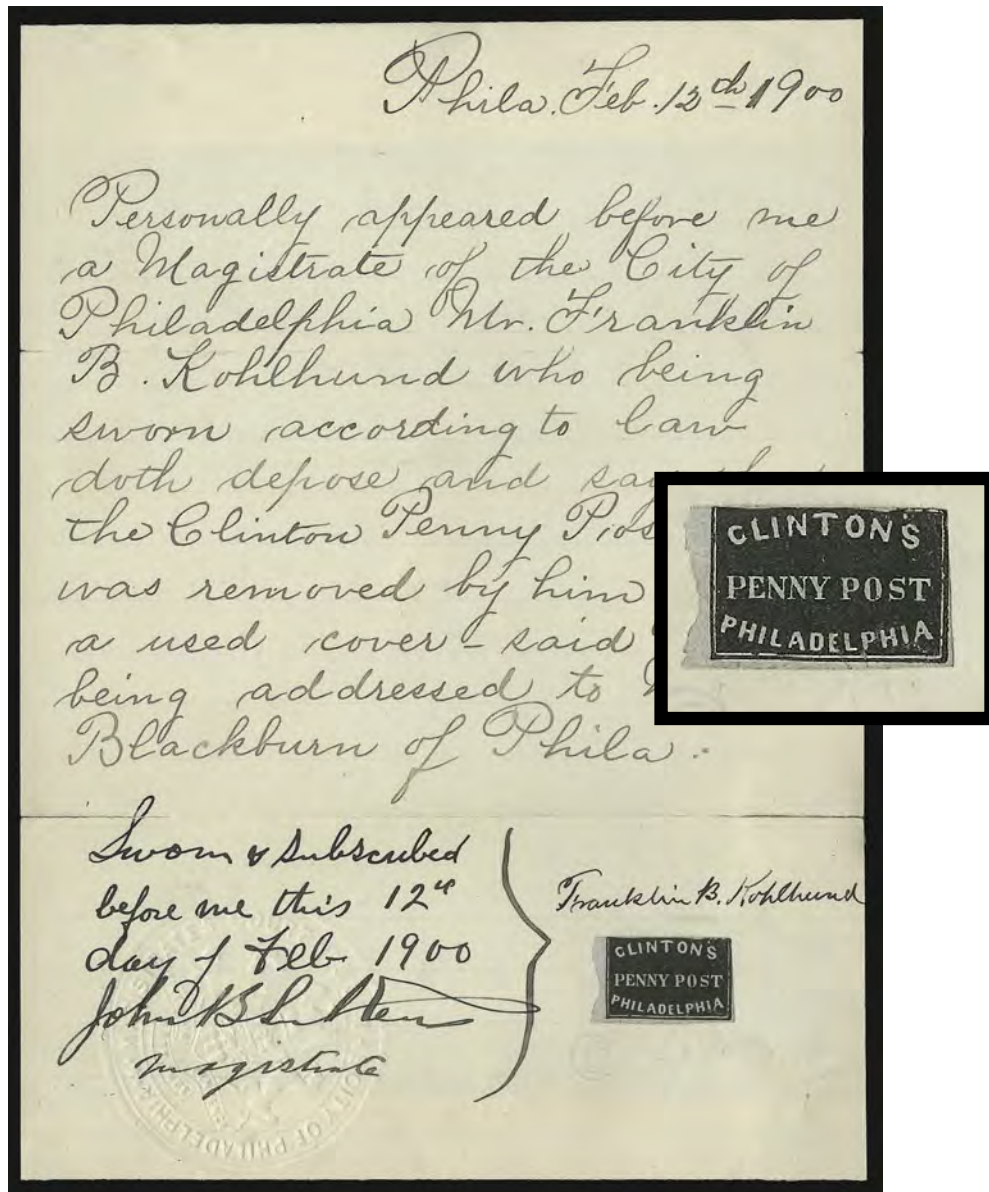 Phila. Feb. 12th 1900
Personally appeared before me
a Magistrate of the City of
Philadelphia Mr. Franklin
B. Kohlhund who being
sworn according to law
doth depose and say
the Clinton Penny Pos
was removed by him
a used cover - said
being addressed to
Blackburn of Phila.
CLINTON'S
PENNY POST
PHILADELPHIA
Sworn & subscribed
before me this 12th
day of Feb 1900
John B
magistrate
Franklin B. Kohlhund
CLINTON'S
PENNY POST
PHILADELPHIA
CITY OF PHILADELPHIA